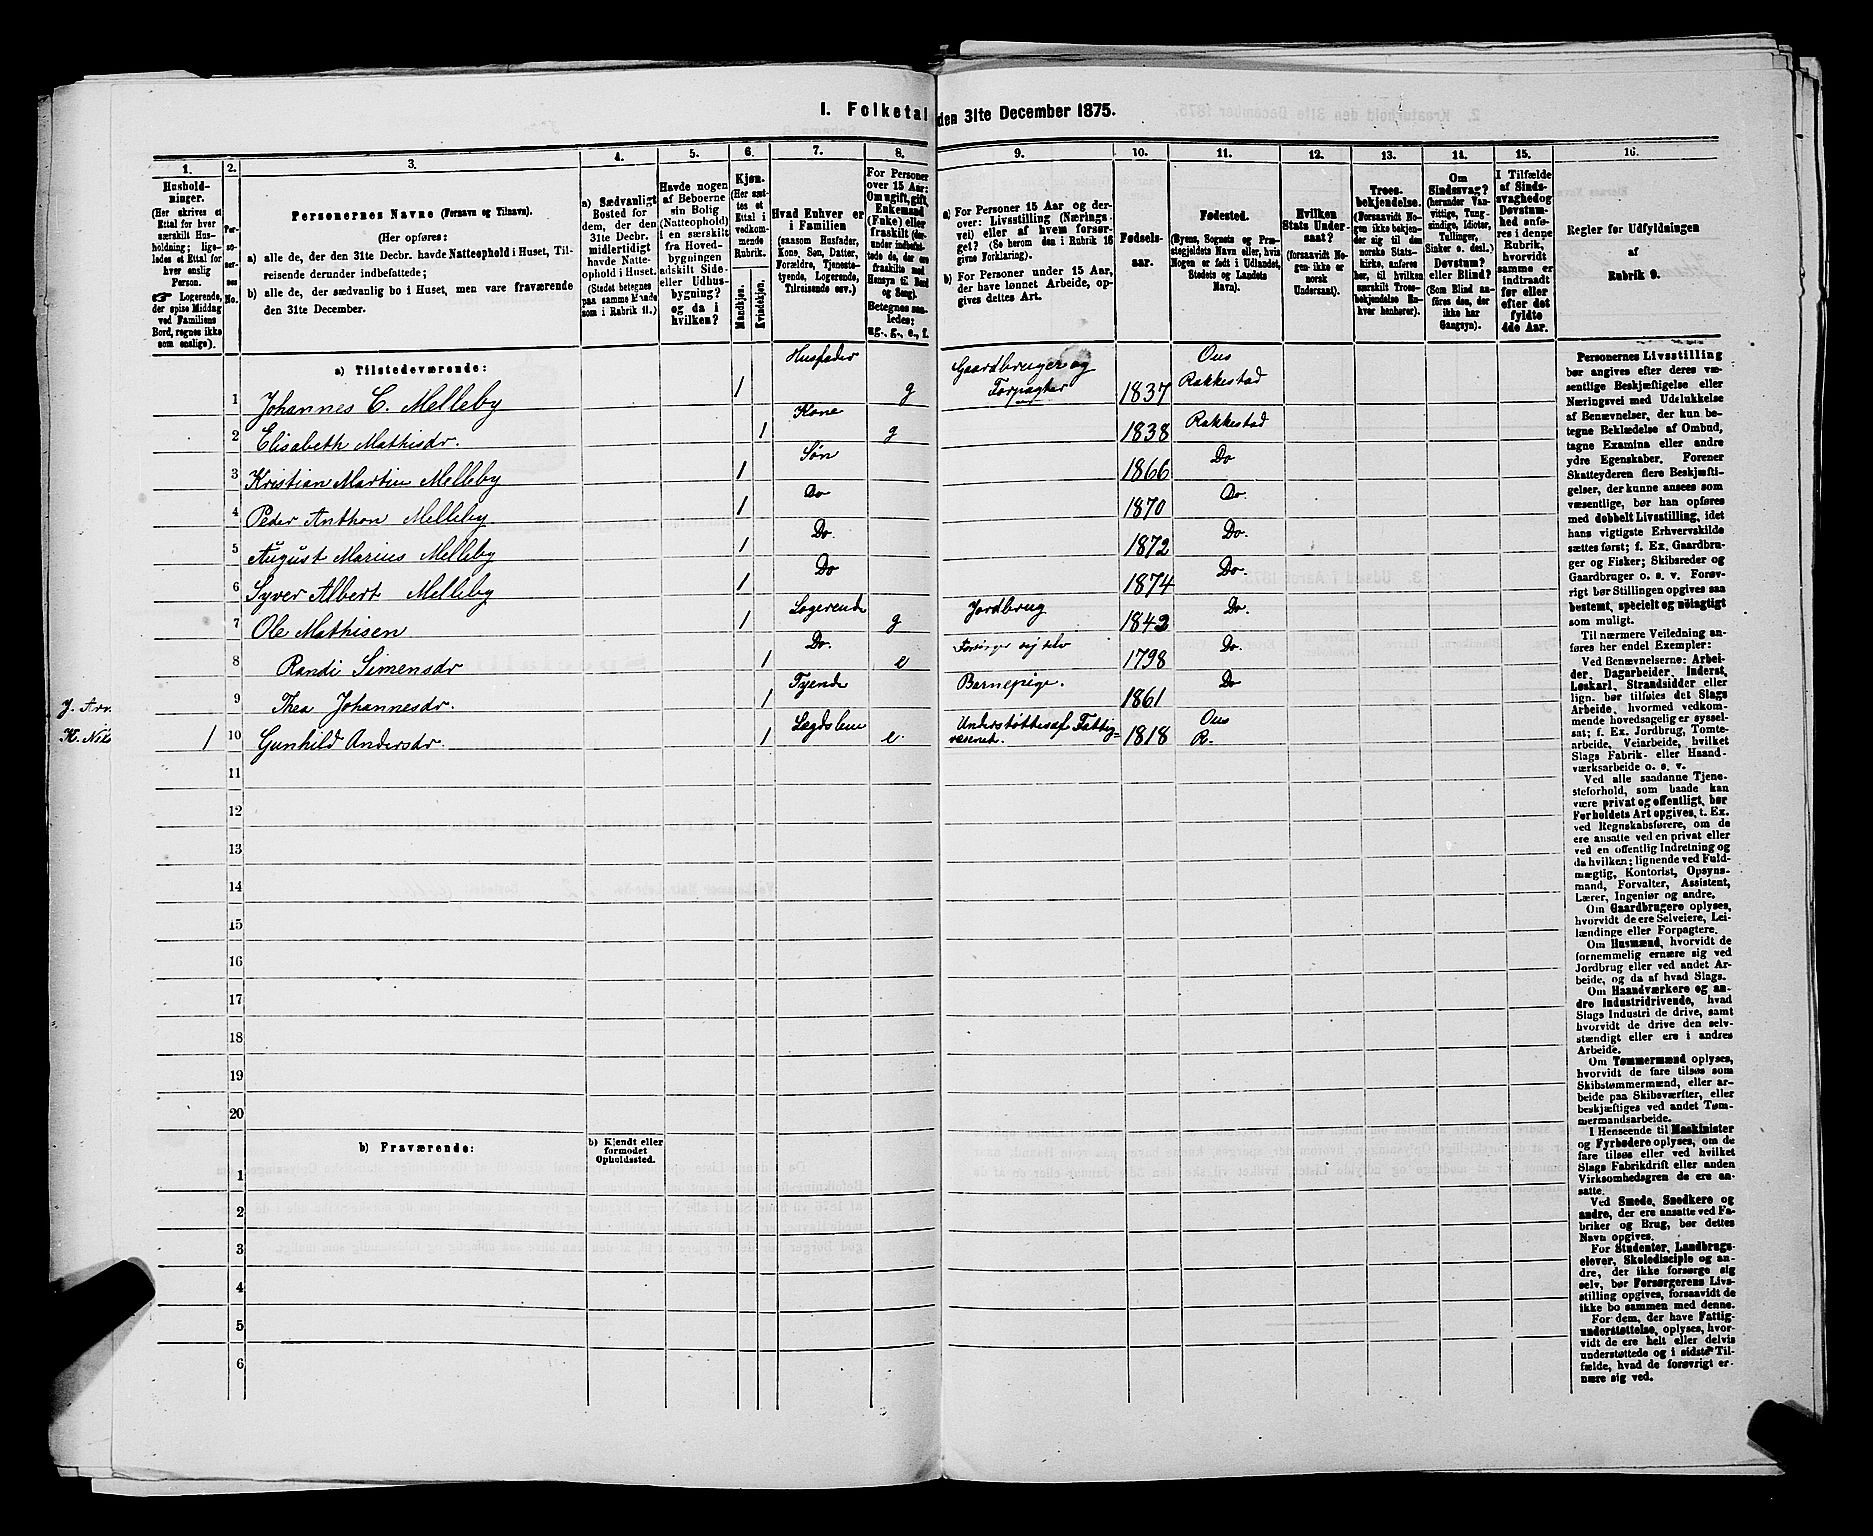 I. Folketal den 31te December 1875.
1. 2. 3. 4. 5. 6. 7. 8. 9. 10. 11. 12. 13. 14. 15. 16.
Hushold-
ninger.
(Her skrives et
Ettal for hver
særskilt Hus-
holdning; lige-
ledes et Ettal for
hver enslig
Person.
☞ Logerende,
der spise Middag
ved Familiens
Bord, regnes ikke
som enslige).
Per-
so-
ner-
nes
No.
Personernes Navne (Fornavn og Tilnavn).
(Her opføres:
a) alle de, der den 31te Decbr. havde Natteophold i Huset, Til-
reisende derunder indbefattede;
b) alle de, der sædvanlig bo i Huset, men vare fraværende
den 31te December.
a) Sædvanligt
Bosted for
dem, der den
31te Decbr.
midlertidigt
havde Natte-
ophold i Huset.
(Stedet betegnes
paa samme Maade
som i Rubrik 11.)
Havde nogen
af Beboerne
sin Bolig
(Natteophold)
i en særskilt
fra Hoved-
bygningen
adskilt Side-
eller Udhus-
bygning?
og da i
hvilken?
Kjøn.
(Her sæt-
tes et
Ettal i
vedkom-
mende
Rubrik.
Mandkjøn.
Kvindekjøn.
Hvad Enhver er
i Familien
(saasom Husfader,
Kone, Søn, Datter,
Forældre, Tjeneste-
tyende, Logerende,
Tilreisende osv.)
For Personer
over 15 Aar:
Om ugift, gift,
Enkemand
(Enke) eller
fraskilt (der-
under indbefat-
tede de, der ere
fraskilte med
Hensyn til Bord
og Seng).
Betegnes saa-
ledes:
ug., g., e., f.
a) For Personer 15 Aar og der-
over: Livsstilling (Nærings-
vei) eller af hvem forsør-
get? (Se herom den i Rubrik 16
givne Forklaring).
b) For Personer under 15 Aar,
der have lønnet Arbeide, op-
gives dettes Art.
Fødsels-
aar.
Fødested.
(Byens, Sognets og Præ-
stegjeldets Navn eller, hvis
Nogen er født i Udlandet,
Stedets og Landets
Navn).
Hvilken
Stats Under-
saat?
(forsaavidt No-
gen ikke er
norsk
Undersaat).
Troes-
bekjendelse.
(Forsaavidt No-
gen ikke bekjen-
der sig til den
norske Stats-
kirke, anføres
her, til hvilken
særskilt Troes-
bekjendelse En-
hver henhører).
Om
Sindssvag?
(herunder Van-
vittige, Tung-
sindige, Idioter,
Tullinger,
Sinker o. desl.)
Døvstum?
eller Blind?
(Som Blind an-
føres den, der
ikke har
Gangsyn).
I Tilfælde
af Sinds-
svaghed og
Døvstum-
hed anfø-
res i denne
Rubrik,
hvorvidt
samme er
indtraadt
før eller
efter det
fyldte
4de Aar.
Regler for Udfyldningen
af
Rubrik 9.
a) Tilstedeværende:
1 Johannes C. Melleby 1 Husfader g Gaardbruger og Forpagter 1837 Ous Rakkestad
2 Elisabeth Mathisdr. 1 Kone g 1838 Rakkestad
3 Kristian Martin Melleby 1 Søn 1866 Do
4 Peder Anthon Melleby 1 Do 1870 Do.
5 August Marius Melleby 1 Do. 1872 Do.
6 Syver Albert Melleby 1 Do 1874 Do.
7 Ole Mathisen 1 Logerende g Jordbrug 1842 Do.
8 Randi Simensdr 1 Do. e Forsørger sig selv 1798 Do.
J. Arn
9 Thea Johannesdr. 1 Tyende Barnepige. 1861 Do
K. Nils
1 10 Gunhild Andersdr. 1 Lægdslem e. Understøttes af Fattig=væsenet. 1818 Ous R.
11
12
13
14
15
16
17
18
19
20
b) Fraværende:
b) Kjendt eller
formodet
Opholdssted.
1
2
3
4
5
6
Personernes Livsstilling
bør angives efter deres væ-
sentlige Beskjæftigelse eller
Næringsvei med Udelukkelse
af Benævnelser, der kun be-
tegne Beklædelse af Ombud,
tagne Examina eller andre
ydre Egenskaber. Forener
Skatteyderen flere Beskjæfti-
gelser, der kunne ansees som
væsentlige, bør han opføres
med dobbelt Livsstilling, idet
hans vigtigste Erhvervskilde
sættes først; f. Ex. Gaardbru-
ger og Fisker; Skibsreder og
Gaardbruger o. s. v. Forøv-
rigt bør Stillingen opgives saa
bestemt, specielt og nøiagtigt
som muligt.
Til nærmere Veiledning an-
føres her endel Exempler:
Ved Benævnelserne: Arbei-
der, Dagarbeider, Inderst,
Løskarl, Strandsidder eller
lign. bør tilføies det Slags
Arbeide, hvormed vedkom-
mende hovedsagelig er syssel-
sat; f. Ex. Jordbrug, Tomte-
arbeide, Veiarbeide, hvilket
Slags Fabrik- eller Haand-
værksarbeide o. s. v.
Ved alle saadanne Tjene-
steforhold, som baade kan
være privat og offentligt, bør
Forholdets Art opgives, t. Ex.
ved Regnskabsførere, om de
ere ansatte ved en privat eller
ved en offentlig Indretning og
da hvilken; lignende ved Fuld-
mægtig, Kontorist, Opsyns-
mand, Forvalter, Assistent,
Lærer, Ingeniør og andre.
Om Gaardbrugere oplyses,
hvorvidt de ere Selveiere, Lei-
lændinge eller Forpagtere.
Om Husmænd, hvorvidt de
fornemmelig ernære sig ved
Jordbrug eller ved andet Ar-
beide, og da af hvad Slags.
Om Haandværkere og an-
dre Industridrivende, hvad
Slags Industri de drive, samt
hvorvidt de drive den selv-
stændigt eller ere i andres
Arbeide.
Om Tømmermænd oplyses,
hvorvidt de fare tilsøs som
Skibstømmermænd, eller ar-
beide paa Skibsværfter, eller
beskjæftiges ved andet Tøm-
mermandsarbeide.
I Henseende til Maskinister
og Fyrbødere oplyses, om de
fare tilsøs eller ved hvilket
Slags Fabrikdrift eller anden
Virksomhedsgren de ere an-
satte.
Ved Smede, Snedkere og
andre, der ere ansatte ved Fa-
briker og Brug, bør dettes
Navn opgives.
For Studenter, Landbrugs-
elever, Skoledisciple og an-
dre, der ikke forsørge sig
selv, bør Forsørgerens Livs-
stilling opgives, forsaavidt de
ikke bo sammen med denne.
For dem, der have Fattig-
understøttelse, oplyses, hvor-
vidt de ere helt eller delvis
understøttede og i sidste Til-
fælde, hvad de forøvrigt er-
nære sig ved.